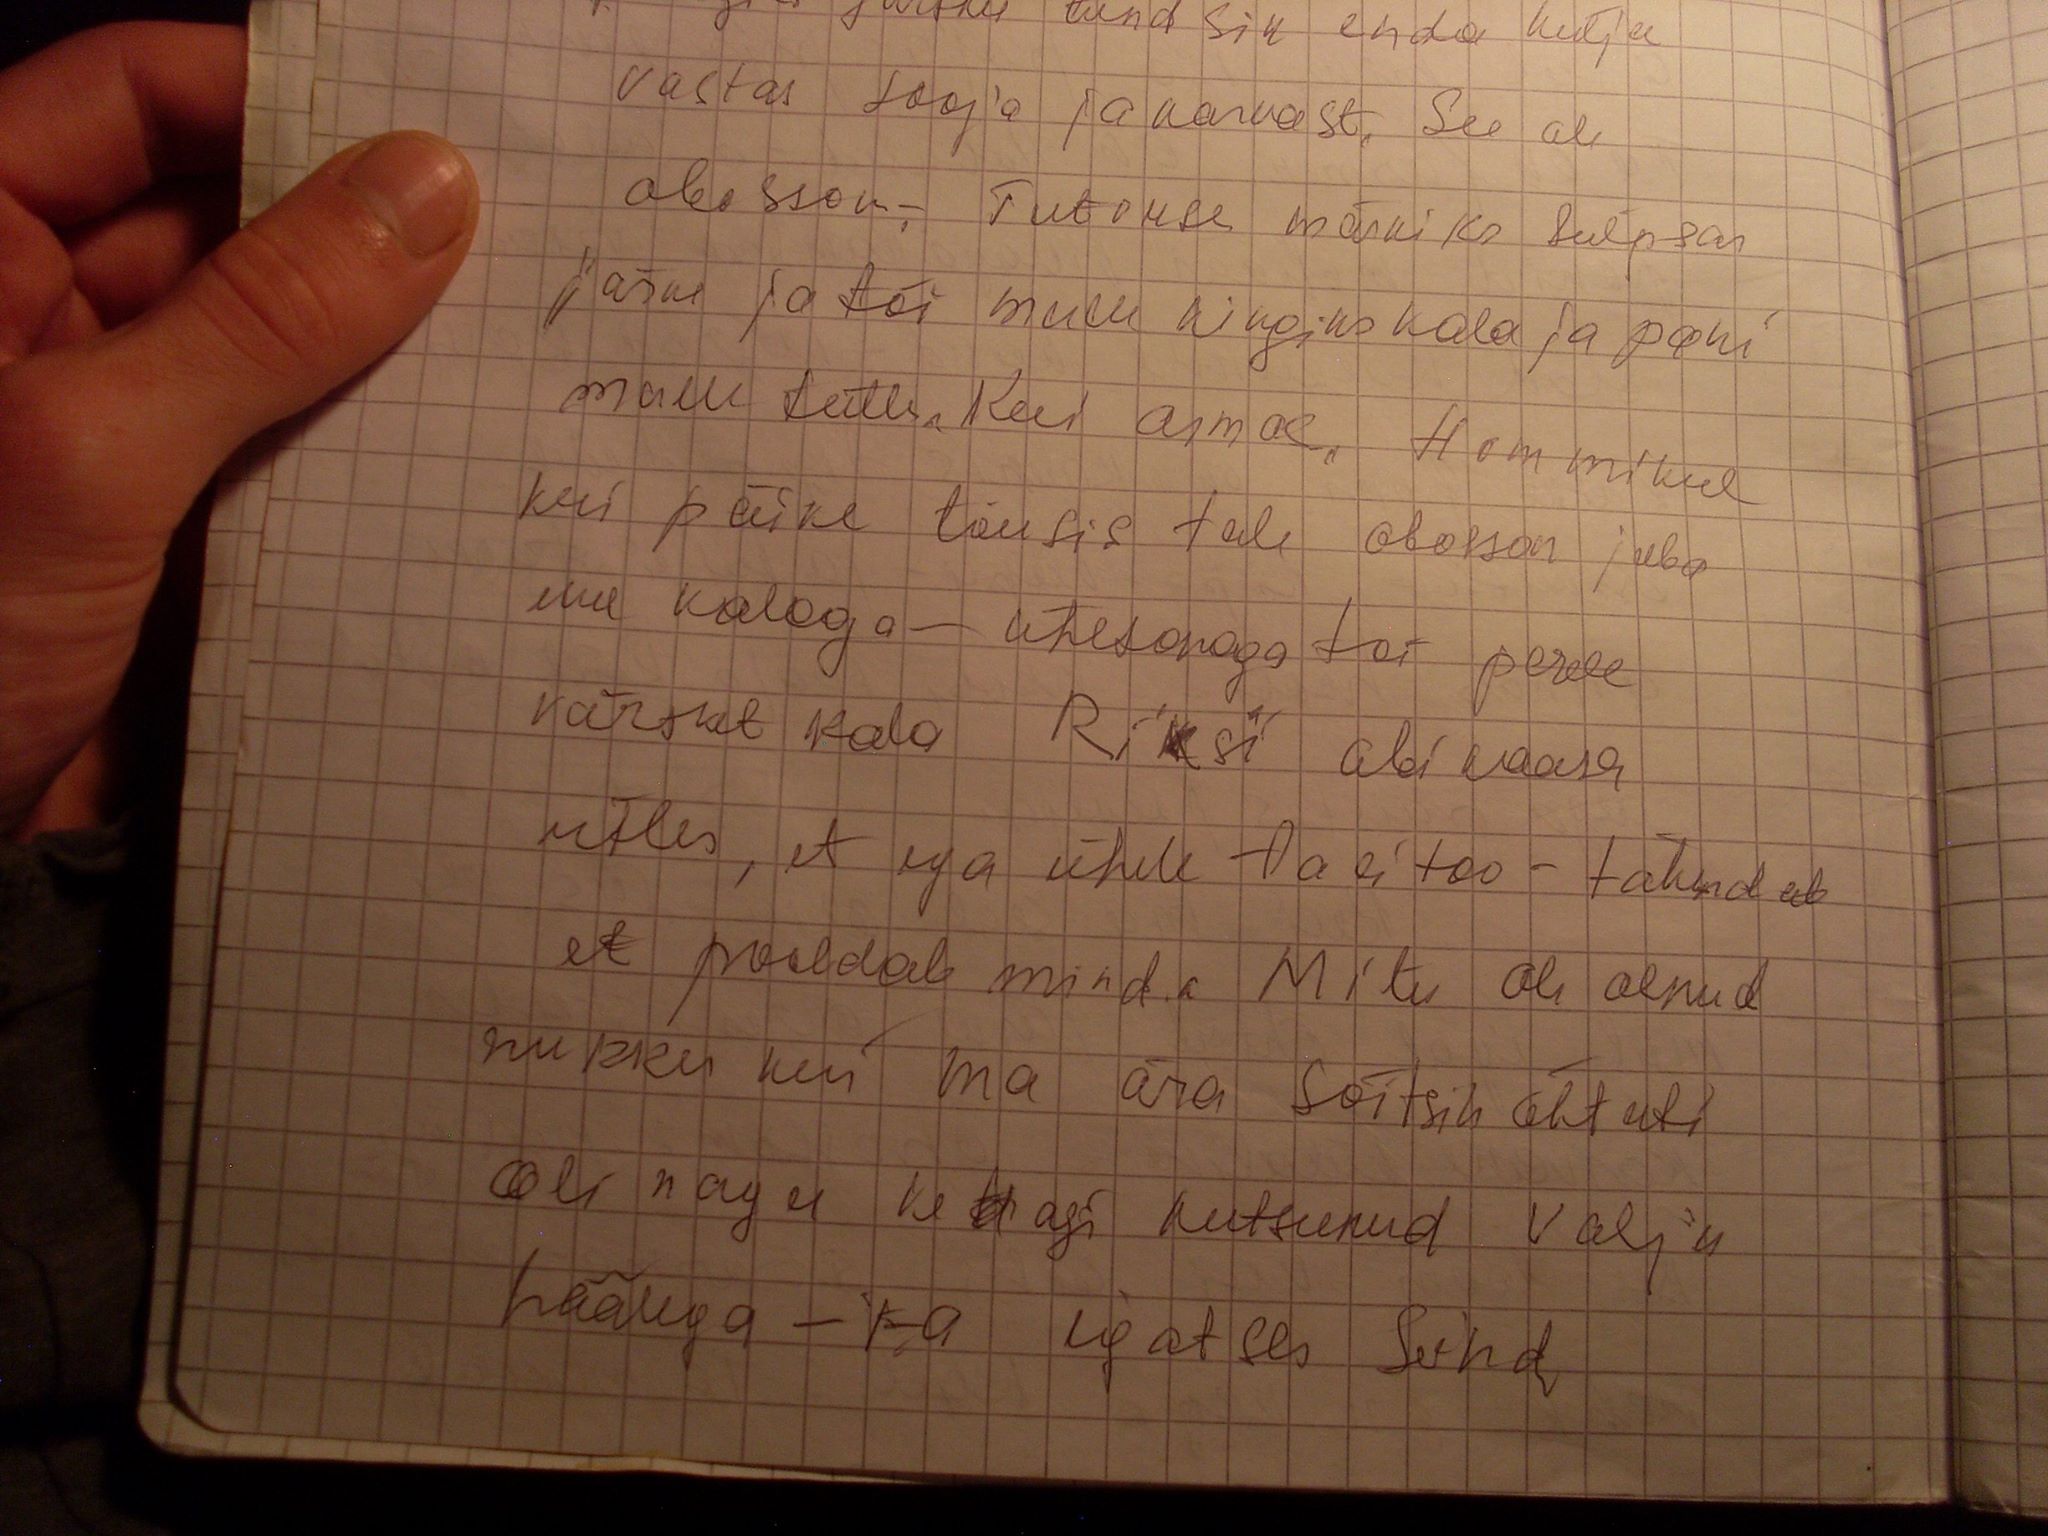 järsku tundsin enda külje
vastas sooja ja karvast. See oli
obosson. Tutvuse märkiks sülpsas
järve ja tõi mulle kingiks kala ja pani
mulle sülle. Kui armas. Hommikul
kui päike tõusis tuli obosson juba
uue kalaga – ühesõnaga tõi perele
värsket kala Rikši abikaasa
ütles, et ega ühele ta ei too – tähendab
et pooldab mind. Mitu oli olnud
nukku kui ma ära sõitsin õhtuti
oli nagu kedagi kutsunud valju
häälega – ikka igatses sind